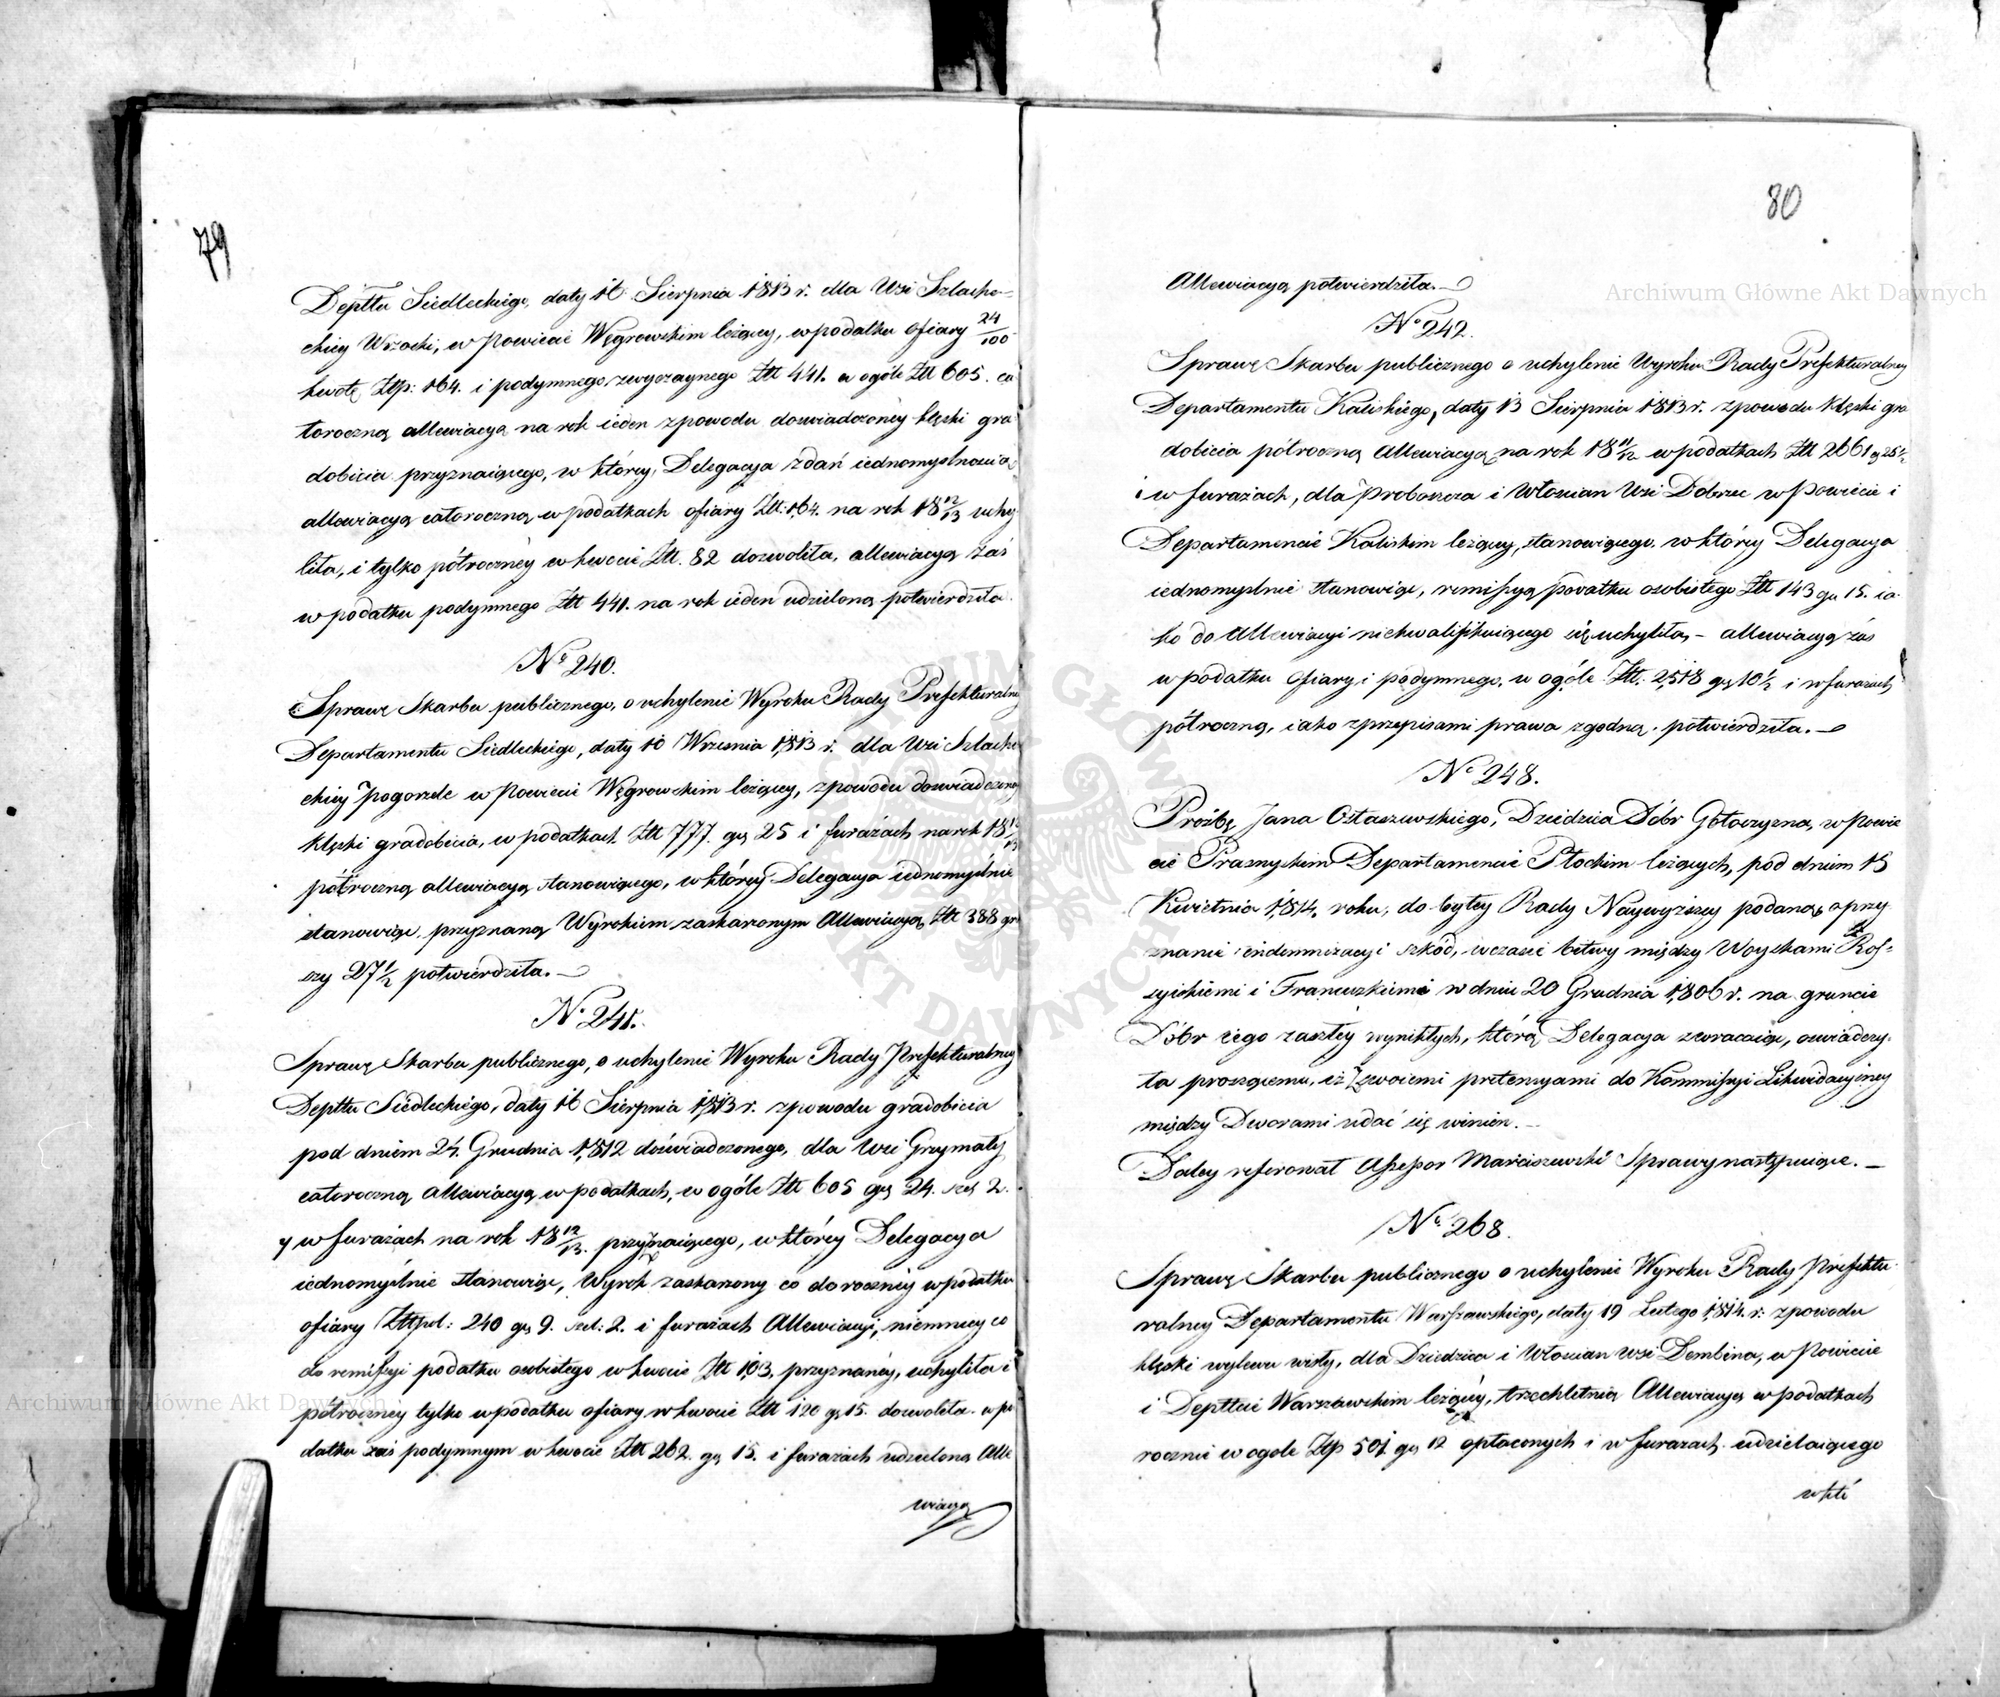 79
Depttu Siedleckiego, daty 16 Sierpnia 1813 r. dla Wsi Szlache-
ckiey Wrzoski, w Powiecie Węgrowskim leżącey, w podatku ofiary 24/100
kwotę Ztp: 164. i podymnego zwyczaynego Ztt 441. w ogóle Ztt 605. ca
toroczną allewiacyą na rok ieden z powodu doswiadczoney klęski gra
dobicia przyznaiącego, w którey, Delegacya zdań iednomyslnoscią
allewiacyą całoroczną w podatkach ofiary Ztt: 164. na rok 18 12/13 uchy
liła, i tylko półroczney w kwocie Ztt. 82 dozwoliła, allewiacyą zaś
w podatku podymnego Ztt 441. na rok ieden udzieloną potwierdziła.
No 240.
Sprawę Skarbu publicznego, o uchylenie Wyroku Rady Prefekturalney
Departamentu Siedleckiego, daty 10 Wrzesnia 1813 r. dla Wsi Szlache
ckiey Pogorzele w Powiecie Węgrowskim leżącey, z powodu doswiadczoney
klęski gradobicia, w podatkach Ztt 777. gr 25 i furażach na rok 18 12/13
półroczną allewiacyą stanowiącego, w którey Delegacya iednomyślnie
stanowiąc, przyznaną Wyrokiem zaskarzonym Allewiacyą Ztt 388 gro
szy 27 1/2 potwierdziła.
No 241.
Sprawę Skarbu publicznego, o uchylenie Wyroku Rady Prefekturalney
Depttu Siedleckiego, daty 16 Sierpnia 1813 r. z powodu gradobicia
pod dniem 24. Grudnia 1812 doświadczonego, dla Wsi Grzymały
całoroczną Allewiacyą w podatkach, w ogóle Ztt 605 gr 24. szel 2.
y w furażach na rok 18 12/13. przyznaiącego, w którey Delegacya
iednomyślnie stanowiąc, Wyrok zaskarzony co do roczney w podatku
ofiary Zttpol: 240 gr 9. szel: 2. i furażach Allewiacyi, niemniey co
do remissyi podatku osobistego w kwocie Ztt 103. przyznaney, uchyliła i
półroczney tylko w podatku ofiary w kwocie Ztt 120 gr 15. dozwoliła. w po
datku zaś podymnym w kwocie Ztt 262. gr 15. i furażach udzieloną Alle
wiacyą
80
Allewiacyą potwierdziła.
No 242.
Sprawę Skarbu publicznego o uchylenie Wyroku Rady Prefekturalney
Departamentu Kaliskiego, daty 13 Sierpnia 1813 r. z powodu klęski gra
dobicia półroczną Allewiacyą na rok 18 11/12 w podatkach Ztt 2661 gr 25 1/2
i w furażach, dla Proboszcza i Włoscian Wsi Dobrzec w Powiecie i
Departamencie Kaliskim leżącey, stanowiącego, w którey Delegacya
iednomyslnie stanowiąc, remissyą podatku osobistego Ztt 143 gr 15. ia-
ko do Allewiacyi niekwalifikuiącego się uchyliła, - allewiacyą zaś
w podatku ofiary i podymnego, w ogóle Ztt: 2,518 gr 10 1/2 i w furażach
półroczną, iako z przepisami prawa zgodną, potwierdziła.
No 248.
Prośbę Jana Ostaszewskiego, Dziedzica Dóbr Gołoczyzna, w Powie
cie Prasnyskim Departamencie Płockim leżących, pod dniem 15
Kwietnia 1814 roku, do byłey Rady Naywyższey podaną, o przy
znanie indemnizacyi szkód, w czasie bitwy między Woyskami Ros-
syiskiemi i Francuzkiemi w dniu 20 Grudnia 1806 r. na gruncie
Dóbr iego zaszłey wynikłych, którą Delegacya zwracaiąc, oswiadczy-
ła proszącemu, iż z swoiemi pretensyami do Kommissyi Likwidacyiney
między Dworami udać się winien.
Daley referował Assessor Marciszewski Sprawy następuiące.
No 268.
Sprawę Skarbu publicznego o uchylenie Wyroku Rady Prefektu-
ralney Departamentu Warszawskiego, daty 19 Lutego 1814. r: z powodu
klęski wylewu wisły, dla Dziedzica i Włoscian wsi Dembina, w Powiecie
i Depttcie Warszawskim leżącey, trzechletnią Allewiacyą w podatkach
rocznie w ogole Ztp 501 gr 12 opłaconych i w furażach udzielaiącego
w któ
Archiwum Główne Akt Dawnych
Archiwum Główne Akt Dawnych